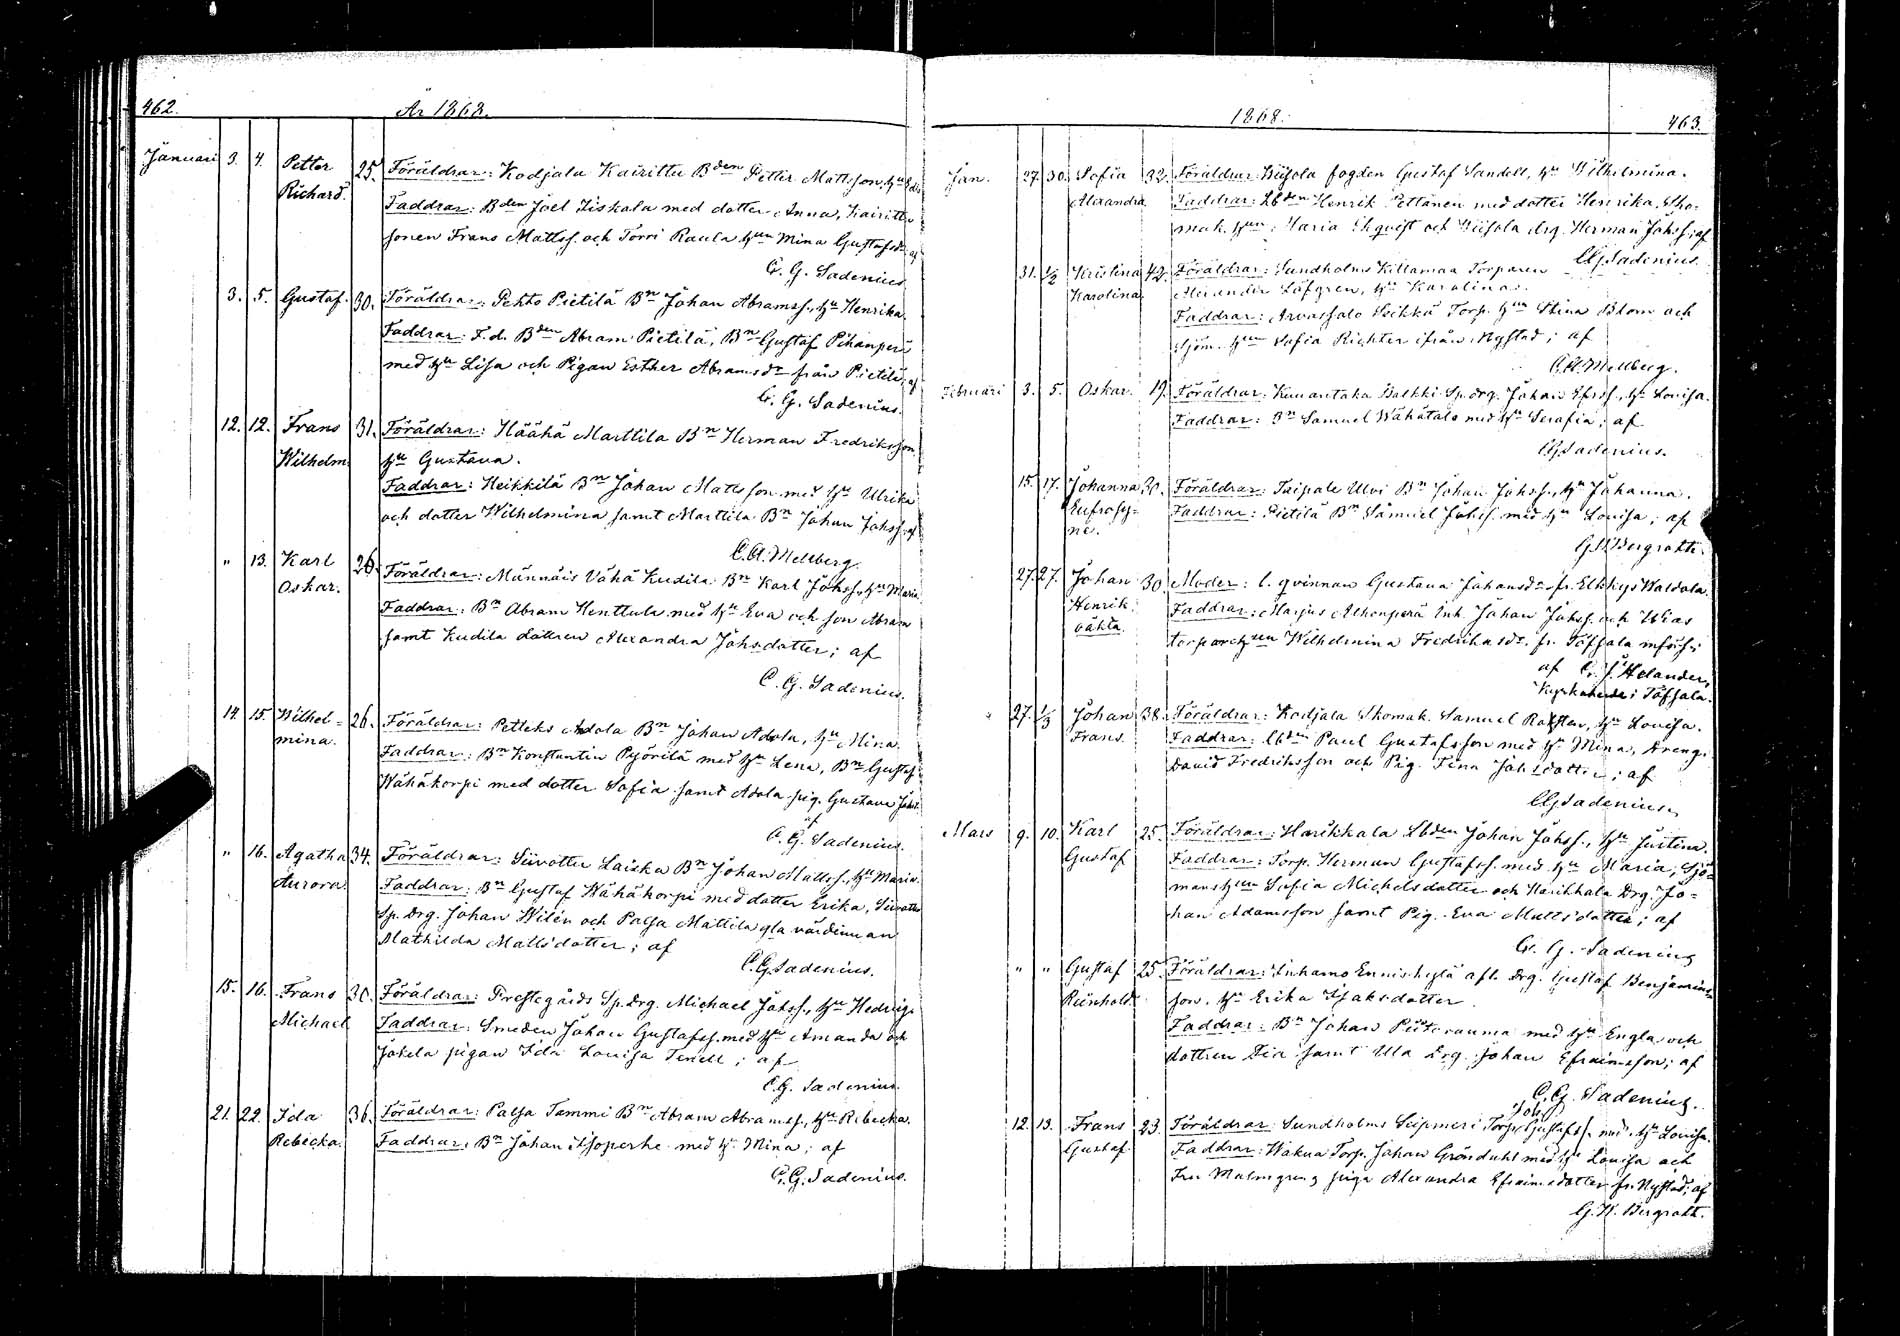 462. År 1868.
Januari 3. 4. Petter Richard. 25. Föräldrar: Kodjala Kairittu Bden Petter Mattsson, hu
Faddrar: Bden Joel Ziskala med dotter Anna, Kairittu
sonen Frans Mattss. och Torri Raula hun Mina Gustafsdr af
C. G. Sadenius
3. 5. Gustaf. 30. Föräldrar: Pehto Pietilä Bn Johan Abramss., hu Henrika.
Faddrar: F.d. Bden Abram Pietilä, Bn Gustaf Pihanperä
med hu Lisa och Pigan Esther Abramsdr från Pietilä; af
C. G. Sadenius.
12. 12. Frans Wilhelm. 31. Föräldrar: Häähä Marttila Bn Herman Fredriksson,
hu Gustava.
Faddrar: Heikkilä Bn Johan Matsson med hu Ulrika
och dotter Wilhelmina samt Marttila Bn Johan Johss. af
C. A. Mellberg.
" 13. Karl Oskar. 26. Föräldrar: Männäis Vähä Kudila Bn Karl Johss., hu Maria
Faddrar: Bn Abram Henttula med hu Eva och son Abram
samt Kudila dottren Alexandra Johsdotter; af
C. G. Sadenius.
14. 15. Wilhel=mina. 26. Föräldrar: Petteks Adola Bn Johan Adola, hu Mina.
Faddrar: Bn Konstantin Pyörilä med hu Lena, Bn Gustaf
Wähäkorpi med dotter Sofia samt Adola pig. Gustava
af
C. G. Sadenius.
" 16. Agatha Aurora. 34. Föräldrar: Siivottu Laiska Bn Johan Mattss., hu Maria.
Faddrar: Bn Gustaf Wähäkorpi med dotter Erika, Siivottu
Sp. Drg. Johan Wilén och Palsa Mattila gla värdinnan
Mathilda Mattsdotter; af
C. G. Sadenius.
15. 16. Frans Michael 30. Föräldrar: Prestegårds Sp. Drg. Michael Johss., hu Hedvig.
Faddrar: Smeden Johan Gustafss. med hu Amanda och
Jokela pigan Ida Lovisa Tenell; af
C. G. Sadenius.
21. 22. Ida Rebecka. 36. Föräldrar: Palsa Tammi Bn Abram Abramss., hu Rebecka.
Faddrar: Bn Johan Isoperhe med hu Mina; af
C. G. Sadenius.
1868. 463.
Jan. 27. 30. Sofia Alexandra 32. Föräldrar: fogden Gustaf Sandell, hu Wilhelmina.
Faddrar: Lbden Henrik Pettänen med dotter Henrika, Sko-
mak. hun Maria Ekqvist och drg. Herman Johss; af
CG Sadenius.
31. 1/2 Kristina Karolina 42. Föräldrar: Sundholms Killamaa Torparen
Alexander Löfgren, hu Karolina.
Faddrar: Arvassalo Seikkä Torp. hun Stina Blom och
Sjöm. hun Sofia Richter ifrån Nystad; af
C. A. Mellberg.
Februari 3. 5. Oskar. 19. Föräldrar: Kukuntaka Balkki Sp. drg. Johan , hu Lovisa.
Faddrar: Bn Samuel Wähätalo med hu Serafia; af
CG Sadenius.
15. 17. Johanna Eufrosy=ne. 30. Föräldrar: Taipale Ulvi Bn Johan Johss., hu Johanna.
Faddrar: Pietilä Bn Samuel Johss. med hu Lovisa; af
G. W. Bergroth.
27. 27. Johan Henrik oäkta. 30. Moder: l. qvinnan Gustava Johansdr fr. Elkkys Waldola.
Faddrar: Marjus Alhonperä Inh. Johan Johss. och Wias
torparehun Wilhelmina Fredriksdr fr. Töfsala
af C. J. Helander,
Kyrkoherde i Töfsala.
" 27. 1/3 Johan Frans. 38. Föräldrar: Kodjala Skomak. Samuel , hu Lovisa.
Faddrar: Lbden Paul Gustafsson med hu Mina, Dreng.
David Fredriksson och Pig. Tina Johsdotter; af
CG Sadenius
Mars 9. 10. Karl Gustaf 25. Föräldrar: Harikkala Lbden Johan Johss., hu Justina.
Faddrar: Torp. Herman Gustafss. med hu Maria, Sjö=
manshun Sofia Michelsdotter och Harikkala Drg. Jo=
han Adamsson samt Pig. Eva Mattsdotter; af
C. G. Sadenius
" " Gustaf Reinhold. 25. Föräldrar: Inhamo Ennishylä afl. Drg. Gustaf Benjamins
son, hu Erika Isaksdotter.
Faddrar: Bn Johan med hu Engla och
dottren samt Ula Drg. Johan Efraimsson; af
C. G. Sadenius.
12. 13. Frans Gustaf. 23. Föräldrar: Sundholms Torp. Joh. Gustafss. med hu Lovisa.
Faddrar: Wakua Torp. Johan Gröndahl med hu Lovisa och
Fru Malmgrens piga Alexandra Efraimsdotter fr. Nystad; af
G. W. Bergroth.